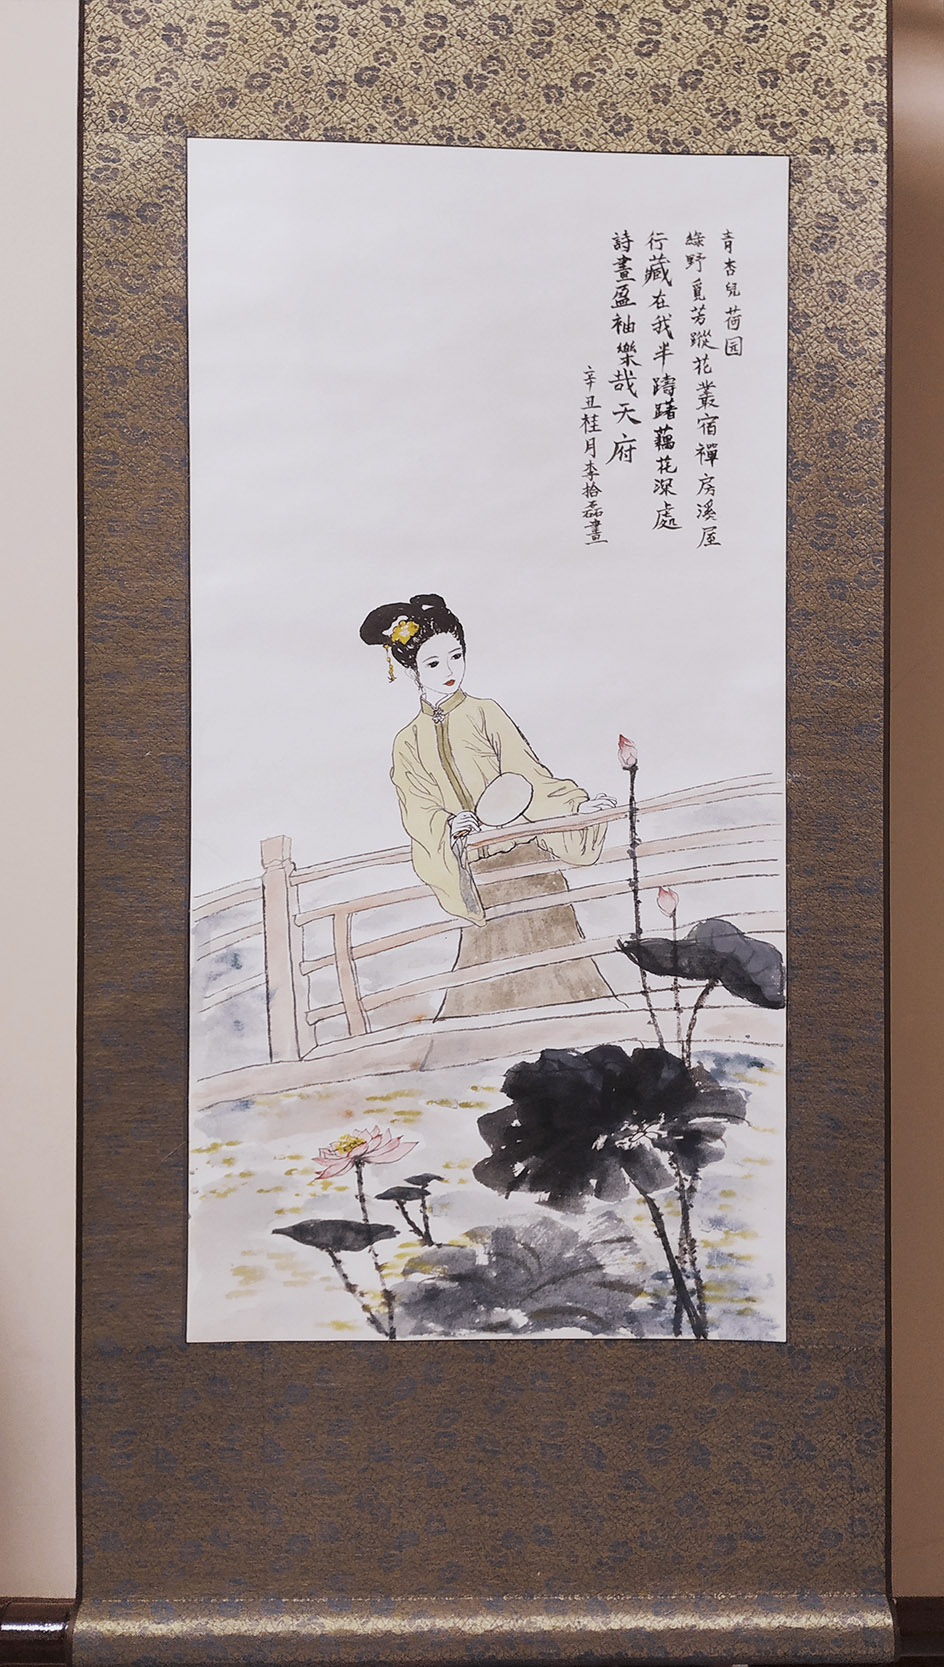 青杏兒 荷园
綠野覓芳蹤花叢宿禪房溪屋
行藏在我半躊躇藕花深處
詩畫盈袖樂哉天府
辛丑桂月李拾磊畫